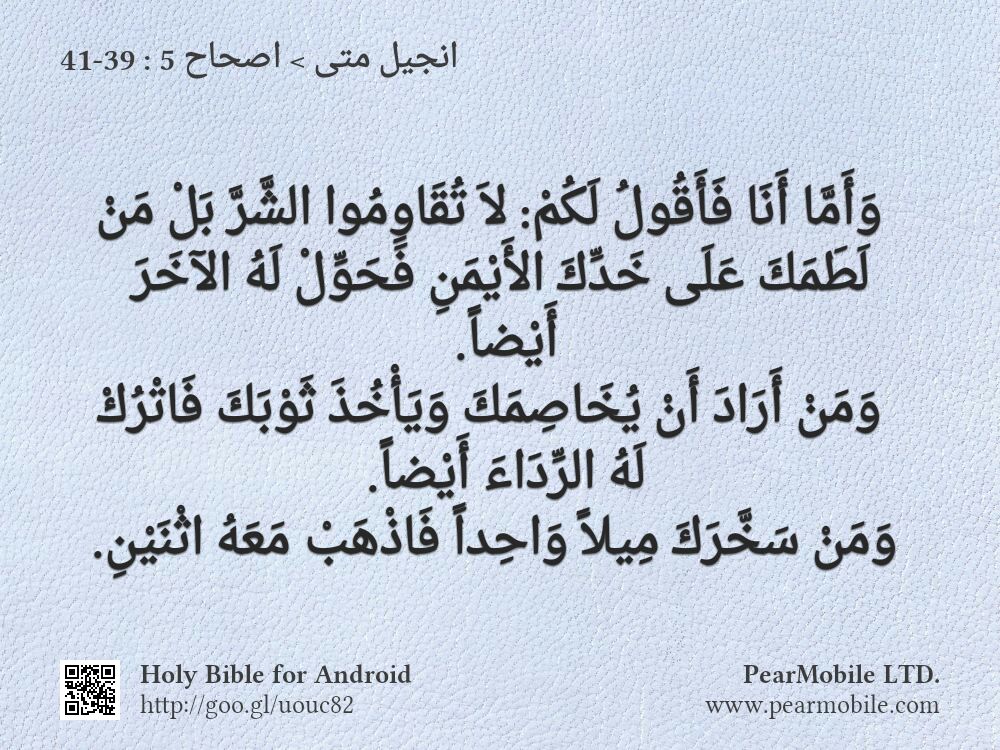 انجيل متى > اصحاح 5 : 39-41
وَأَمَّا أَنَا فَأَقُولُ لَكُمْ: لاَ تُقَاوِمُوا الشَّرَّ بَلْ مَنْ
لَطَمَكَ عَلَى خَدِّكَ الأَيْمَنِ فَحَوِّلْ لَهُ الآخَرَ
أَيْضاً.
وَمَنْ أَرَادَ أَنْ يُخَاصِمَكَ وَيَأْخُذَ ثَوْبَكَ فَاتْرُكْ
لَهُ الرِّدَاءَ أَيْضاً.
وَمَنْ سَخَّرَكَ مِيلاً وَاحِداً فَاذْهَبْ مَعَهُ اثْنَيْنِ.
Holy Bible for Android
http://goo.gl/uouc82
PearMobile LTD.
www.pearmobile.com